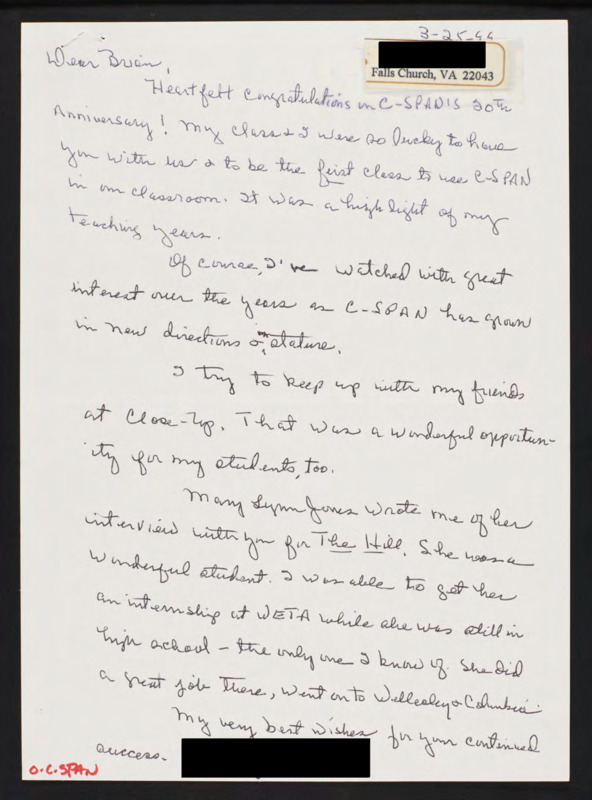 3-25-99
Falls Church, VA 22043
Dear Brian,
Heartfelt congratulations on C-SPAN'S 20th
Anniversary! My class & I were so lucky to have
you with us & to be the first class to use C-SPAN
in our classroom. It was a highlight of my
teaching years.
Of course, I've watched with great
interest over the years as C-SPAN has grown
in new directions & in stature.
I try to keep up with my friends
at Close-Up. That was a wonderful opportun-
ity for my students, too.
Mary Lynn Jones wrote me of her
interview with you for The Hill. She was a
wonderful student. I was able to get her
an internship at WETA while she was still in
high school - the only one I know of. She did
a great job there, went on to Wellesley & Columbia.
My very best wishes for your continued
success.
O.C.SPAN